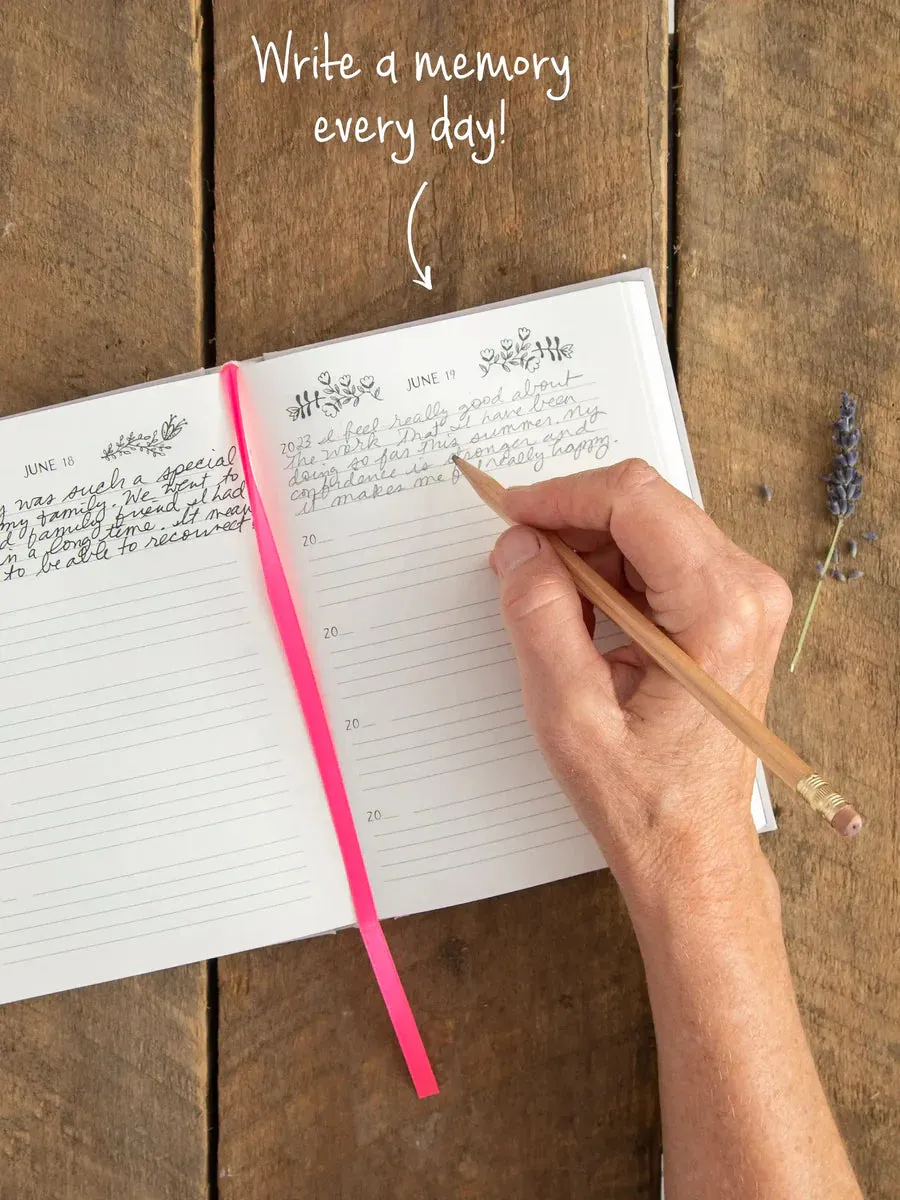 Write a memory
every day!
JUNE 18
was such a special
my family. We went to
family friend I had
in a long time. It mean
to be able to reconnect
JUNE 19
2023 I feel really good about
the work that I have been
doing so far this summer. My
confidence is stronger and
it makes me really happy.
20
20
20
20